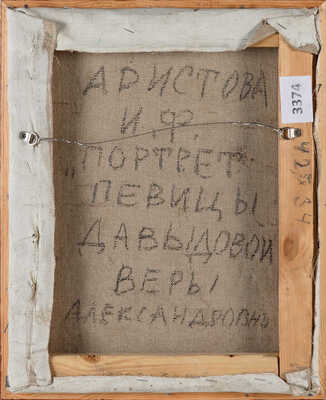 АРИСТОВА
И.Ф.
„ПОРТРЕТ
ПЕВИЦЫ
ДАВЫДОВОЙ
ВЕРЫ
АЛЕКСАНДРОВНЫ
3374